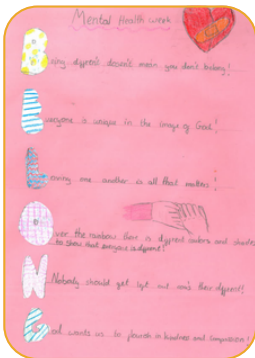 Mental Health week
Being different doesn't mean you don't belong!
Everyone is unique in the image of God!
Loving one another is all that matters!
Over the rainbow there is different colours and shades
to show that everyone is different!
Nobody should get left out cos their different!
God wants us to flourish in kindness and compassion!